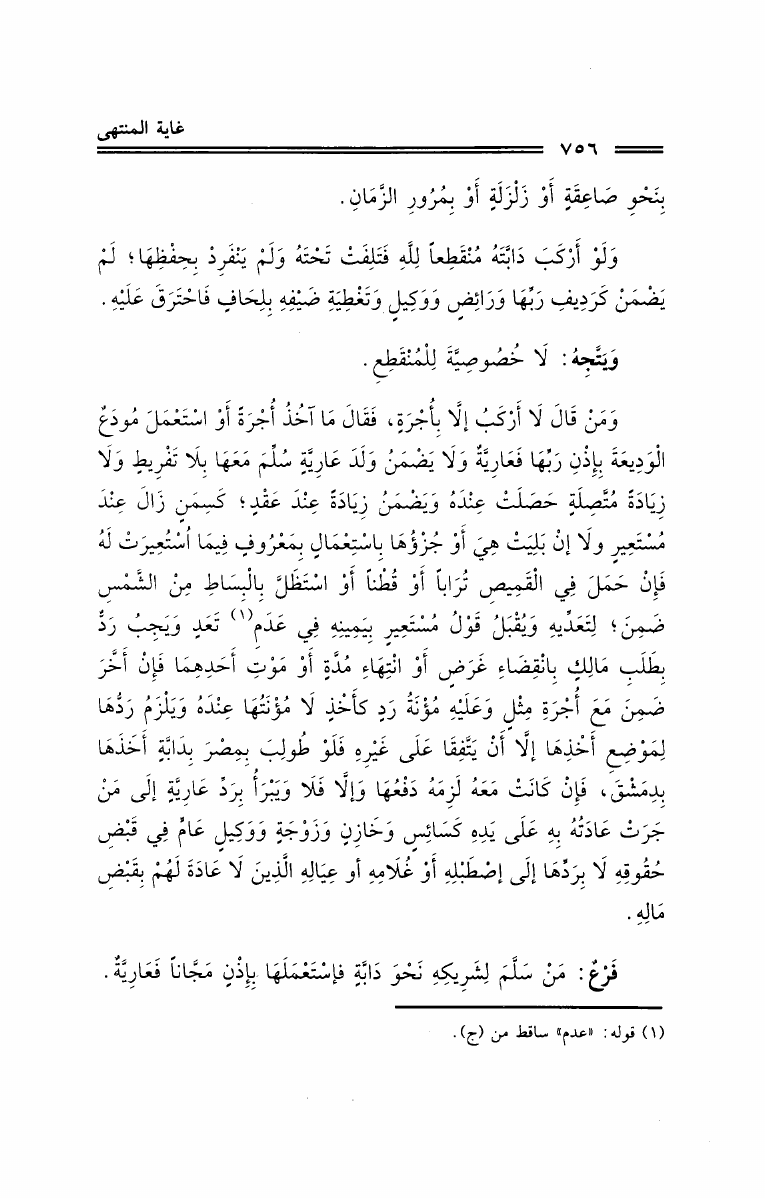 غاية المنتهى
٧٥٦
بِنَحْوِ صَاعِقَةٍ أَوْ زَلْزَلَةٍ أَوْ بِمُرُورِ الزَّمَانِ.
وَلَوْ أَرْكَبَ دَابَّتَهُ مُنْقَطِعاً لِلَّهِ فَتَلِفَتْ تَحْتَهُ وَلَمْ يَنْفَرِدْ بِحِفْظِهَا؛ لَمْ
يَضْمَنْ كَرَدِيفِ رَبِّهَا وَرَائِضٍ وَوَكِيلٍ وَتَغْطِيَةِ ضَيْفِهِ بِلِحَافٍ فَاحْتَرَقَ عَلَيْهِ.
وَيَتَّجِهُ: لَا خُصُوصِيَّةَ لِلْمُنْقَطِعِ.
وَمَنْ قَالَ لَا أَرْكَبُ إِلَّا بِأُجْرَةٍ، فَقَالَ مَا آخُذُ أُجْرَةً أَوْ اسْتَعْمَلَ مُودَعٌ
الْوَدِيعَةَ بِإِذْنِ رَبِّهَا فَعَارِيَّةٌ وَلَا يَضْمَنُ وَلَدَ عَارِيَّةٍ سُلِّمَ مَعَهَا بِلَا تَفْرِيطٍ وَلَا
زِيَادَةً مُتَّصِلَةٍ حَصَلَتْ عِنْدَهُ وَيَضْمَنُ زِيَادَةً عِنْدَ عَقْدٍ؛ كَسِمَنٍ زَالَ عِنْدَ
مُسْتَعِيرٍ ولَا إنْ بَلِيَتْ هِيَ أَوْ جُزْؤُهَا بِاسْتِعْمَالٍ بِمَعْرُوفٍ فِيمَا اُسْتُعِيرَتْ لَهُ
فَإِنْ حَمَلَ فِي الْقَمِيصِ تُرَاباً أَوْ قُطْناً أَوْ اسْتَظَلَّ بِالْبِسَاطِ مِنْ الشَّمْسِ
ضَمِنَ؛ لِتَعَدِّيهِ وَيُقْبَلُ قَوْلُ مُسْتَعِيرٍ بِيَمِينِهِ فِي عَدَمِ(١) تَعَدٍ وَيَجِبُ رَدُّ
بِطَلَبِ مَالِكٍ بِانْقِضَاءِ غَرَضٍ أَوْ انْتِهَاءِ مُدَّةٍ أَوْ مَوْتِ أَحَدِهِمَا فَإِنْ أَخَّرَ
ضَمِنَ مَعَ أُجْرَةِ مِثْلٍ وَعَلَيْهِ مُؤْنَةُ رَدٍ كأَخْذٍ لَا مُؤْنَتُهَا عِنْدَهُ وَيَلْزَمُ رَدُّهَا
لِمَوْضِعِ أَخْذِهَا إلَّا أَنْ يَتَّفِقَا عَلَى غَيْرِهِ فَلَوْ طُولِبَ بِمِصْرَ بِدَابَّةٍ أَخَذَهَا
بِدِمَشْقَ، فَإِنْ كَانَتْ مَعَهُ لَزِمَهُ دَفْعُهَا وَإِلَّا فَلَا وَيَبْرَأُ بِرَدِّ عَارِيَّةٍ إلَى مَنْ
جَرَتْ عَادَتُهُ بِهِ عَلَى يَدِهِ كَسَائِسٍ وَخَازِنٍ وَزَوْجَةٍ وَوَكِيلٍ عَامٍّ فِي قَبْضِ
حُقُوقِهِ لَا بِرَدِّهَا إلَى إصْطَبْلِهِ أَوْ غُلَامِهِ أو عِيَالِهِ الَّذِينَ لَا عَادَةَ لَهُمْ بِقَبْضِ
مَالِهِ.
فَرْعٌ: مَنْ سَلَّمَ لِشَرِيكِهِ نَحْوَ دَابَّةٍ فإسْتَعْمَلَهَا بِإِذْنٍ مَجَّاناً فَعَارِيَّةٌ.
(١) قوله: «عدم» ساقط من (ج).